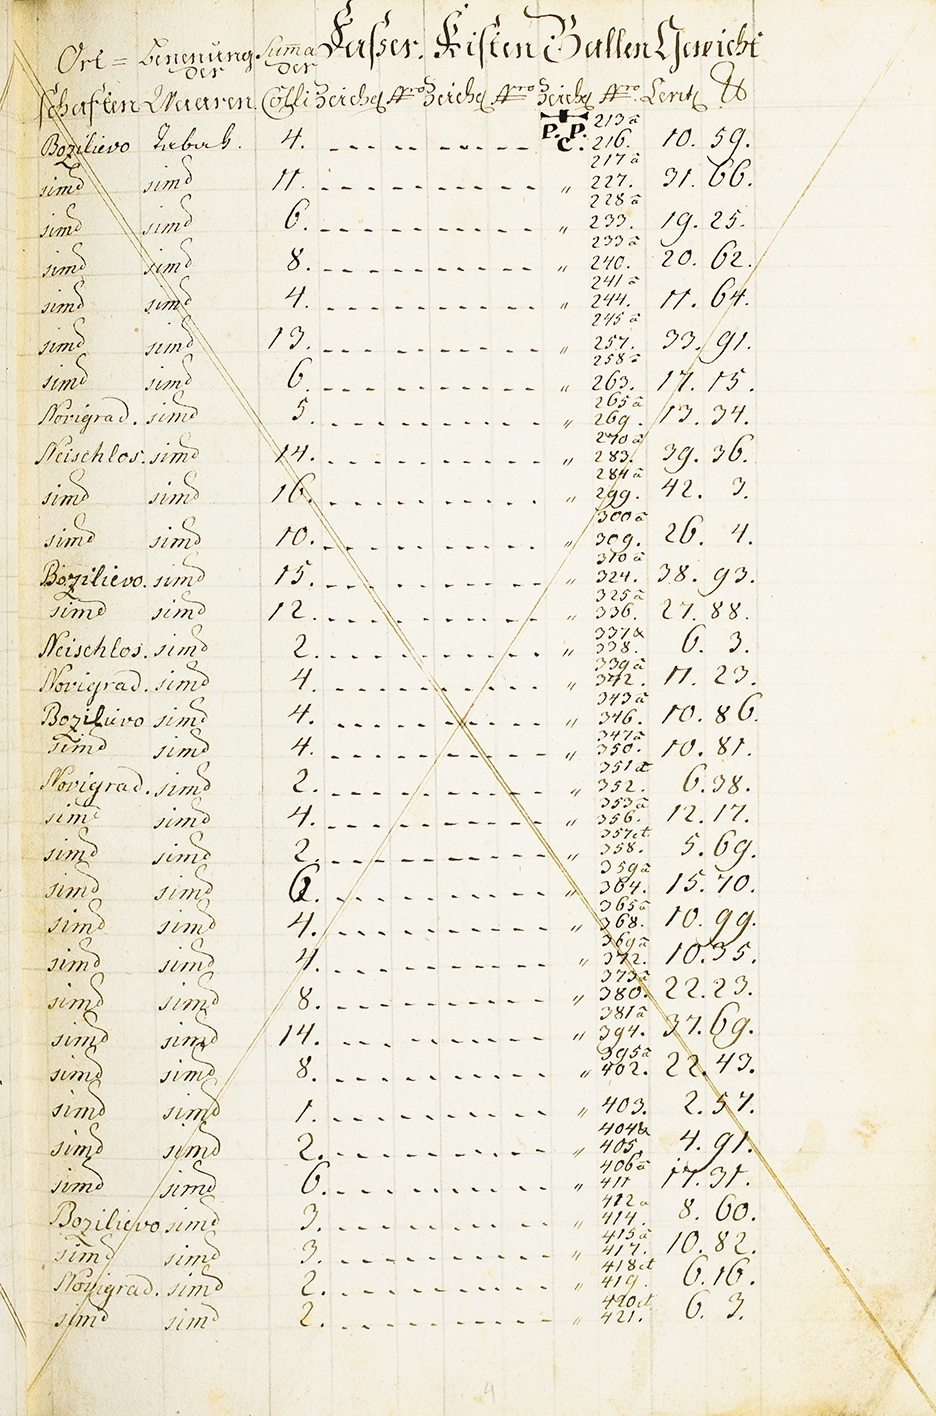 Ort= Benenung Suma Fasser. Kisten Ballen Gewicht
der der
schaften Waaren. Colli Zeichg Nro Zeichg Nro Zeichg Nro Cent ℔
P. P. C. 213 a
Bozilievo Tabak. 4. 216. 10. 59.
217 a
simd simd 11. " 227. 31. 66.
228 a
simd simd 6. " 233. 19. 25.
233 a
simd simd 8. " 240. 20. 62.
241 a
simd simd 4. " 244. 11. 64.
245 a
simd simd 13. " 257. 33. 91.
258 a
simd simd 6. " 263. 17. 15.
265 a
Novigrad. simd 5. " 269. 13. 34.
270 a
Neischlos. simd 14. " 283. 39. 36.
284 a
simd simd 16. " 299. 42. 3.
300 a
simd simd 10. " 309. 26. 4.
310 a
Bozilievo. simd 15. " 324. 38. 93.
325 a
simd simd 12. " 336. 27. 88.
337 &
Neischlos. simd 2. " 338. 6. 3.
339 a
Novigrad. simd 4. " 342. 11. 23.
343 a
Bozilievo simd 4. " 346. 10. 86.
347 a
simd simd 4. " 350. 10. 81.
351 et
Novigrad. simd 2. " 352. 6. 38.
353 a
simd simd 4. " 356. 12. 17.
357 et
simd simd 2. " 358. 5. 69.
359 a
simd simd 6. " 364. 15. 70.
365 a
simd simd 4. " 368. 10. 99.
369 a
simd simd 4. " 372. 10. 35.
373 a
simd simd 8. " 380. 22. 23.
381 a
simd simd 14. " 394. 37. 69.
395 a
simd simd 8. " 402. 22. 43.
simd simd 1. " 403. 2. 57.
404 &
simd simd 2. " 405. 4. 91.
406 a
simd simd 6. " 411 17. 31.
412 a
Bozilievo simd 3. " 414. 8. 60.
415 a
simd simd 3. " 417. 10. 82.
418 et
Novigrad. simd 2. " 419. 6. 16.
420 et
simd simd 2. " 421. 6. 3.
4